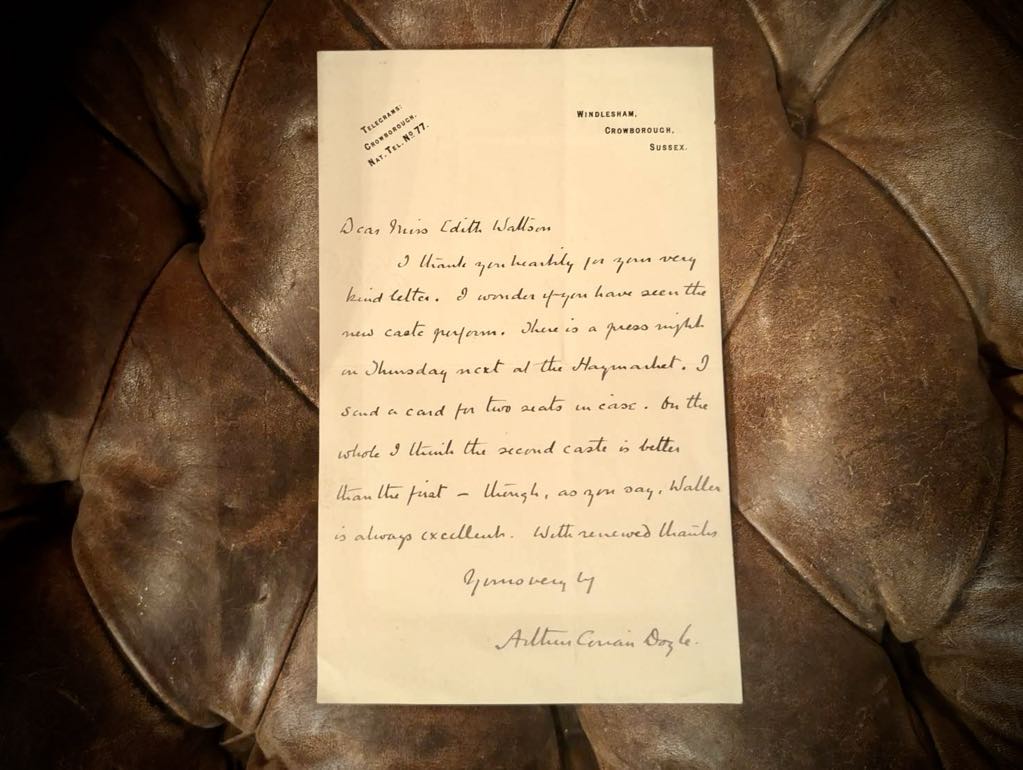 TELEGRAMS:
CROWBOROUGH.
NAT. TEL. No. 77.
WINDLESHAM,
CROWBOROUGH,
SUSSEX.
Dear Miss Edith Wattson
I thank you heartily for your very
kind letter. I wonder if you have seen the
new caste perform. There is a press night
on Thursday next at the Haymarket. I
send a card for two seats in case. On the
whole I think the second caste is better
than the first – though, as you say, Waller
is always excellent. With renewed thanks
Yours very ly
Arthur Conan Doyle.